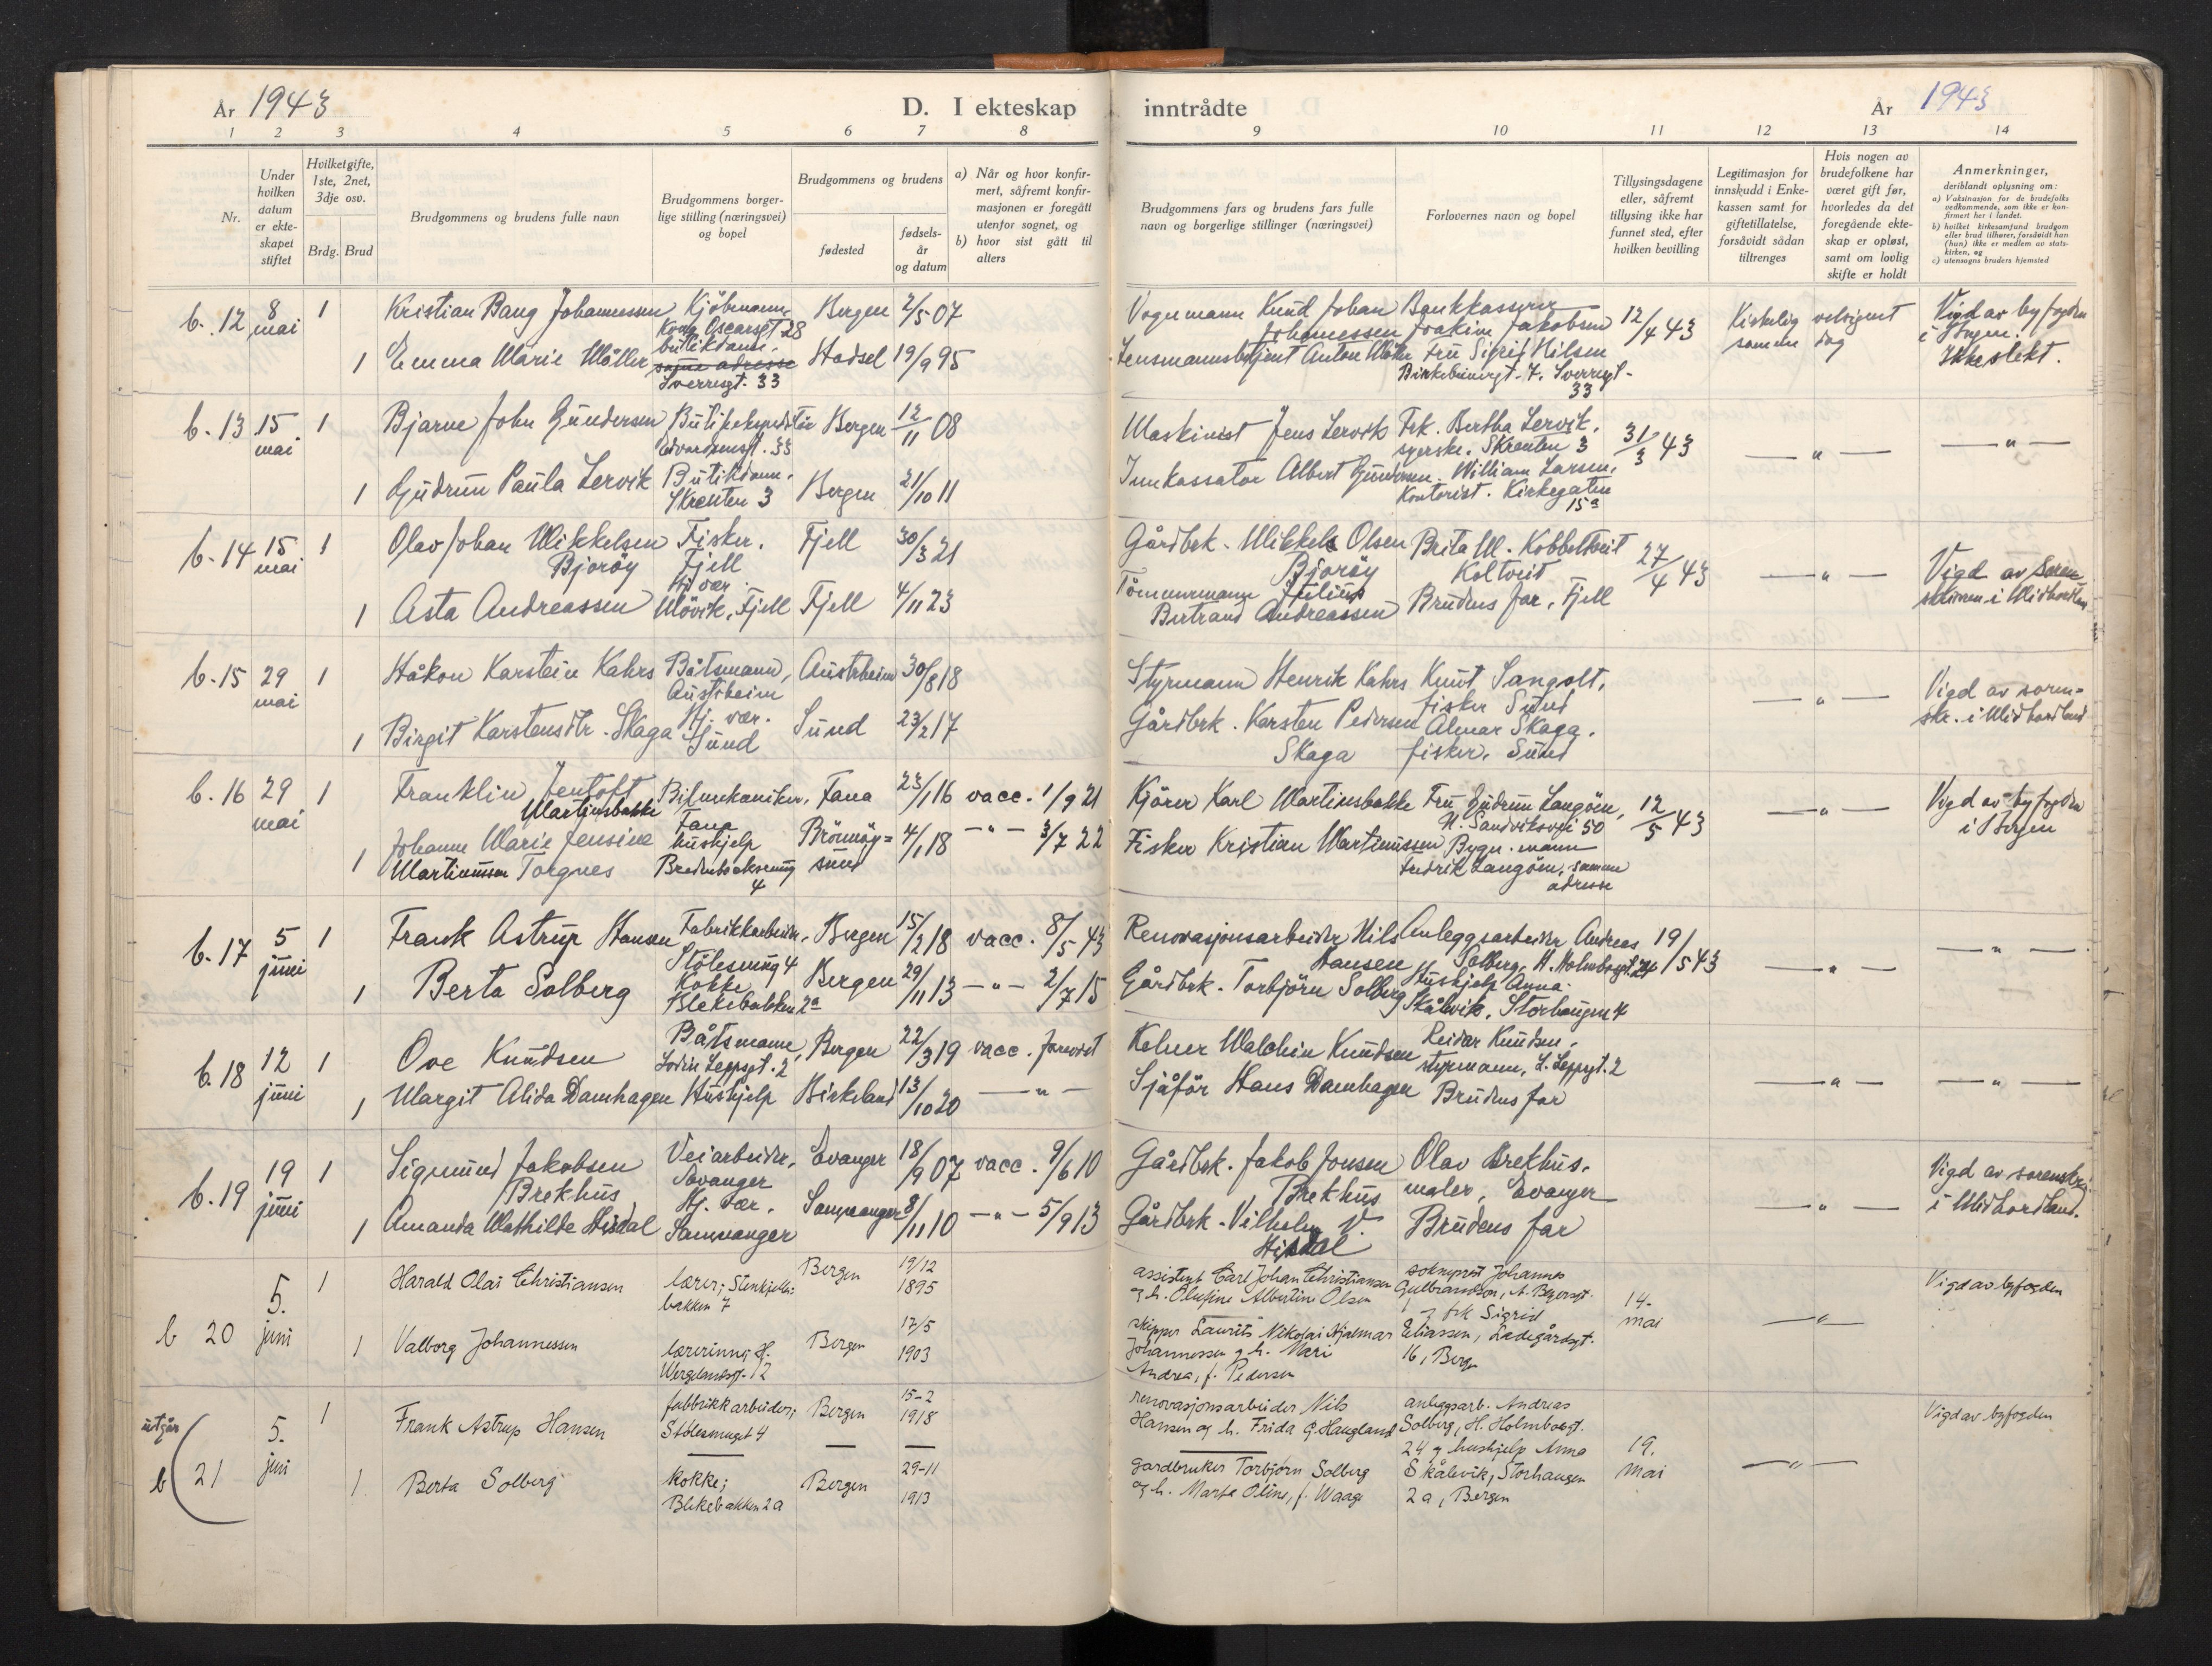 År 1943
D. I ekteskap
1 2 3 4 5 6 7 8
Nr.
Under hvilken datum er ekteskapet stiftet
Hvilket gifte, 1ste, 2net, 3dje osv.
Brdg. Brud
Brudgommens og brudens fulle navn
Brudgommens borgerlige stilling (næringsvei) og bopel
Brudgommens og brudens
fødested
fødselsår og datum
a) Når og hvor konfirmert, såfremt konfirmasjonen er foregått utenfor sognet, og
b) hvor sist gått til alters
inntrådte
År 1943
9 10 11 12 13 14
Brudgommens fars og brudens fars fulle navn og borgerlige stillinger (næringsvei)
Forlovernes navn og bopel
Tillysingsdagene eller, såfremt tillysing ikke har funnet sted, efter hvilken bevilling
Legitimasjon for innskudd i Enkekassen samt for giftetillatelse, forsåvidt sådan tiltrenges
Hvis nogen av brudefolkene har været gift før, hvorledes da det foregående ekteskap er opløst, samt om lovlig skifte er holdt
Anmerkninger,
deriblandt oplysning om:
a) Vaksinasjon for de brudefolks vedkommende, som ikke er konfirmert her i landet.
b) hvilket kirkesamfund brudgom eller brud tilhører, forsåvidt han (hun) ikke er medlem av statskirken, og
c) utensogns bruders hjemsted
b. 12 8 mai 1 Kristian Bang Johannessen Kjöbmann, Kong Oscarsgt 28 Bergen 2/5 07
1 Emma Marie Möller butikdame, samme adresse Sverresgt. 33 Hadsel 19/9 95
Vognmann Knud Johan Johannessen
Lensmannsbetjent Anton Möller
Bankkasserer Joakim Jakobsen
Fru Sigrid Nilsen
Birkebeinergt. 7. Sverresgt. 33
12/4 43
Kirkelig velsignet samme dag
Vigd av byfogden i Bergen. Ikke slekt.
b. 13 15 mai 1 Bjarne John Gundersen Butikekspeditör Edvardsensgt. 33 Bergen 12/11 08
1 Gudrun Paula Lervik Butikdame. Skrenten 3 Bergen 21/10 11
Maskinist Jens Lervik
Inkassator Albert Gundersen.
Frk. Bertha Lervik, syerske. Skrenten 3
William Larsen, Kontorist. Kirkegaten 15a
31/3 43
— " — — " —
b. 14 15 mai 1 Olav Johan Mikkelsen Bjoröy Fisker. Fjell Fjell 30/3 21
1 Asta Andreassen Hj. vær. Mövik, Fjell Fjell 4/11 23
Gårdbrk. Mikkel Olsen Bjoröy
Tömmermann Julius Bertrand Andreassen
Brita M. Kobbeltveit Koltveit
Brudens far, Fjell
27/4 43
— " —
Vigd av Sorenskriveren i Midhordland
b. 15 29 mai 1 Håkon Karstein Kahrs Båtsmann, Austrheim Austrheim 30/8 18
1 Birgit Karstensdtr. Skaga Hj. vær. Sund Sund 23/2 17
Styrmann Henrik Kahrs
Gårdbrk. Karsten Pedersen Skaga
Knut Sangolt, fisker Sund
Almar Skaga, fisker, Sund
— " —
Vigd av sorenskr. i Midhordland
b. 16 29 mai 1 Franklin Jentoft Martinsbakke Bilmekaniker, Fana Fana 23/1 16 vacc. 1/9 21
1 Johanne Marie Jensine Martinussen Torgnes hushjelp Bredenbeksmug 4 Brönnöysund 4/1 18 — " — 3/7 22
Kjörer Karl Martinsbakke
Fisker Kristian Martinussen
Fru Gudrun Langöen, N. Sandviksvei 50
Bygn. mann Fredrik Langöen, samme adresse
12/5 43
— " —
Vigd av byfogden i Bergen
b. 17 5 juni 1 Frank Astrup Hansen Fabrikkarbeider, Stölesmug 4 Bergen 15/2 18 vacc. 8/5 43
1 Berta Solberg Kokke Blekebakken 2a Bergen 29/11 13 — " — 2/7 15
Renovasjonsarbeider Nils Hansen
Gårdbrk. Torbjörn Solberg
Anleggsarbeider Andreas Solberg, H. Holmboesgt. 24
Hushjelp Anna Skålevik, Storhaugen 4
19/5 43
— " — — " —
b. 18 12 juni 1 Ove Knudsen Båtsmann, Lodin Leppsgt. 2 Bergen 22/3 19 vacc. forevist
1 Margit Alida Damhagen Hushjelp Birkeland 13/10 20 — " —
Kelner Walchin Knudsen
Sjåför Hans Damhagen
Reidar Knudsen, styrmann, L. Leppsgt. 2
Brudens far
— " — — " —
b. 19 19 juni 1 Sigmund Jakobsen Brekhus Veiarbeider, Evanger Evanger 18/9 07 vacc. 9/6 10
1 Amanda Mathilde Hisdal Hj. vær. Samnanger Samnanger 8/11 10 — " — 5/9 13
Gårdbrk. Jakob Jonsen Brekhus
Gårdbrk. Vilhelm V. Hisdal
Olav Brekhus, maler, Evanger
Brudens far
— " —
Vigd av sorenskr. i Midhordland.
b 20 5. juni 1 Harald Olai Christiansen lærer; Stenkjellerbakken 7 Bergen 19/12 1895
1 Valborg Johannessen lærerinne; H. Wergelandsgt. 12 Bergen 17/5 1903
assistent Carl Johan Christiansen og h. Olufine Albertine Olsen
skipper Laurits Nikolai Hjalmar Johannessen og h. Mari Andrea, f. Pedersen
sokneprest Johannes Gulbrandson, A. Beyersgt. og frk Sigrid Eliassen, Ladegårdsgt. 16, Bergen
14. mai
— " —
Vigd av byfogden
utgår
b 21 5. juni 1 Frank Astrup Hansen fabbrikkarbeider; Stölesmuget 4 Bergen 15-2 1918
1 Berta Solberg kokke; Blekebakken 2a Bergen 29-11 1913
renovasjonsarbeider Nils Hansen og h. Frida G. Haugland
gardbruker Torbjörn Solberg og h. Marta Oline, f. Waage
anleggsarb. Andreas Solberg, H. Holmboesgt. 24 og hushjelp Anna Skålevik, Storhaugen 2a, Bergen
19. mai
— " —
Vigd av byfogden